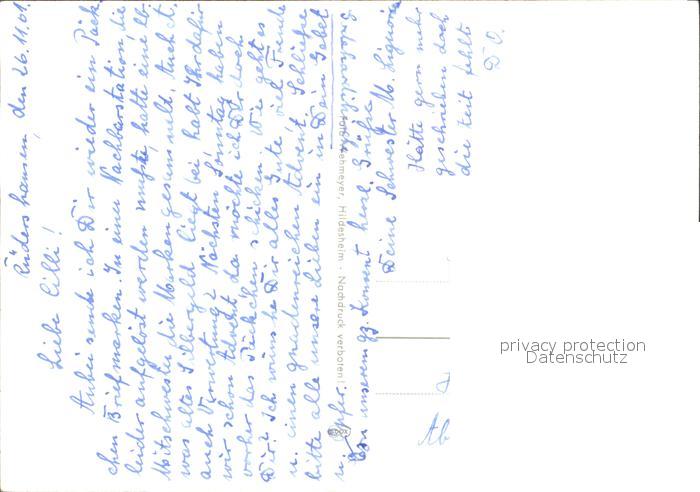 Rüdershausen, den 26.11.61.
Liebe Cilli!
Anbei sende ich Dir wieder ein Päck-
chen Briefmarken. In einer Nachbarstation, die
leider aufgelöst werden mußte, hatte eine lb.
Mitschwester die Marken gesammelt. Auch et-
was altes Silbergeld liegt bei. Habt Ihr dafür
auch Verwertung? Nächsten Sonntag haben
wir schon Advent, da möchte ich Dir doch
vorher das Päckchen schicken. Wie geht es
Dir? Ich wünsche Dir alles Gute, viel Freude
u. einen gnadenreichen Advent. Schließe
bitte alle unsere Lieben ein in Dein Gebet
u. Opfer.
Von unserem gz. Konvent herzl. Grüße
Deine Schwester M. Liguoria
Hätte gern mehr
geschrieben doch
die Zeit fehlt
D. O.
Foto Wehmeyer, Hildesheim · Nachdruck verboten!
Ab
privacy protection
Datenschutz